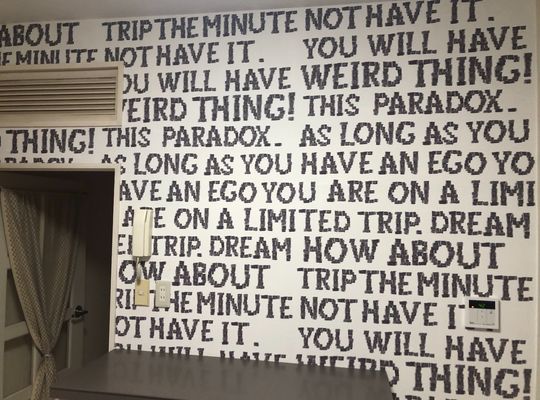 ABOUT TRIP THE MINUTE NOT HAVE IT.
THE MINUTE NOT HAVE IT. YOU WILL HAVE
YOU WILL HAVE WEIRD THING!
WEIRD THING! THIS PARADOX.
THING! THIS PARADOX. AS LONG AS YOU
PARADOX AS LONG AS YOU HAVE AN EGO YO
AVE AN EGO YOU ARE ON A LIMI
ARE ON A LIMITED TRIP. DREAM
TRIP. DREAM HOW ABOUT
HOW ABOUT TRIP THE MINUTE
TRIP THE MINUTE NOT HAVE I
OT HAVE IT. YOU WILL HAVE
YOU WILL HAVE WEIRD THING!
WEIRD THING!